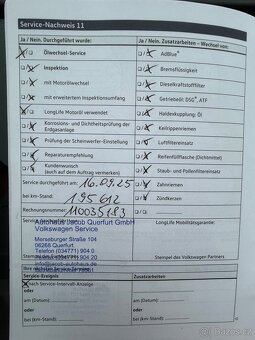 Service-Nachweis 11
Ja / Nein. Durchgeführt wurde:
Ölwechsel-Service
Inspektion
mit Motorölwechsel
mit erweitertem Inspektionsumfang
LongLife Motoröl verwendet
Korrosions- und Dichtheitsprüfung der
Erdgasanlage
Prüfung der Scheinwerfer-Einstellung
Reparaturempfehlung
Kundenwunsch
(auch auf dem Auftrag vermerken)
Service durchgeführt am: 16.09.25
bei km-Stand: 195612
Rechnungsnummer: 110035183
Ja / Nein. Zusatzarbeiten – Wechsel von:
AdBlue
Bremsflüssigkeit
Dieselkraftstofffilter
Getriebeöl: DSG, ATF
Haldexkupplung, Öl
Keilrippenriemen
Luftfiltereinsatz
Reifenfülflasche (Dichtmittel)
Staub- und Pollenfiltereinsatz
Zahnriemen
Zündkerzen
LongLife Mobilitätsgarantie:
Autohaus Jacob Querfurt GmbH
Volkswagen Service
Merseburger Straße 104
06268 Querfurt
Telefon (034771) 904 0
Telefax (034771) 904 20
Stempel des Volkswagen Partners
Service-Ereignis
Zusatzarbeiten
nach Service-Intervall-Anzeige
oder
oder
am (Datum)
am (Datum)
oder
oder
bei (km-Stand)
bei (km-Stand)